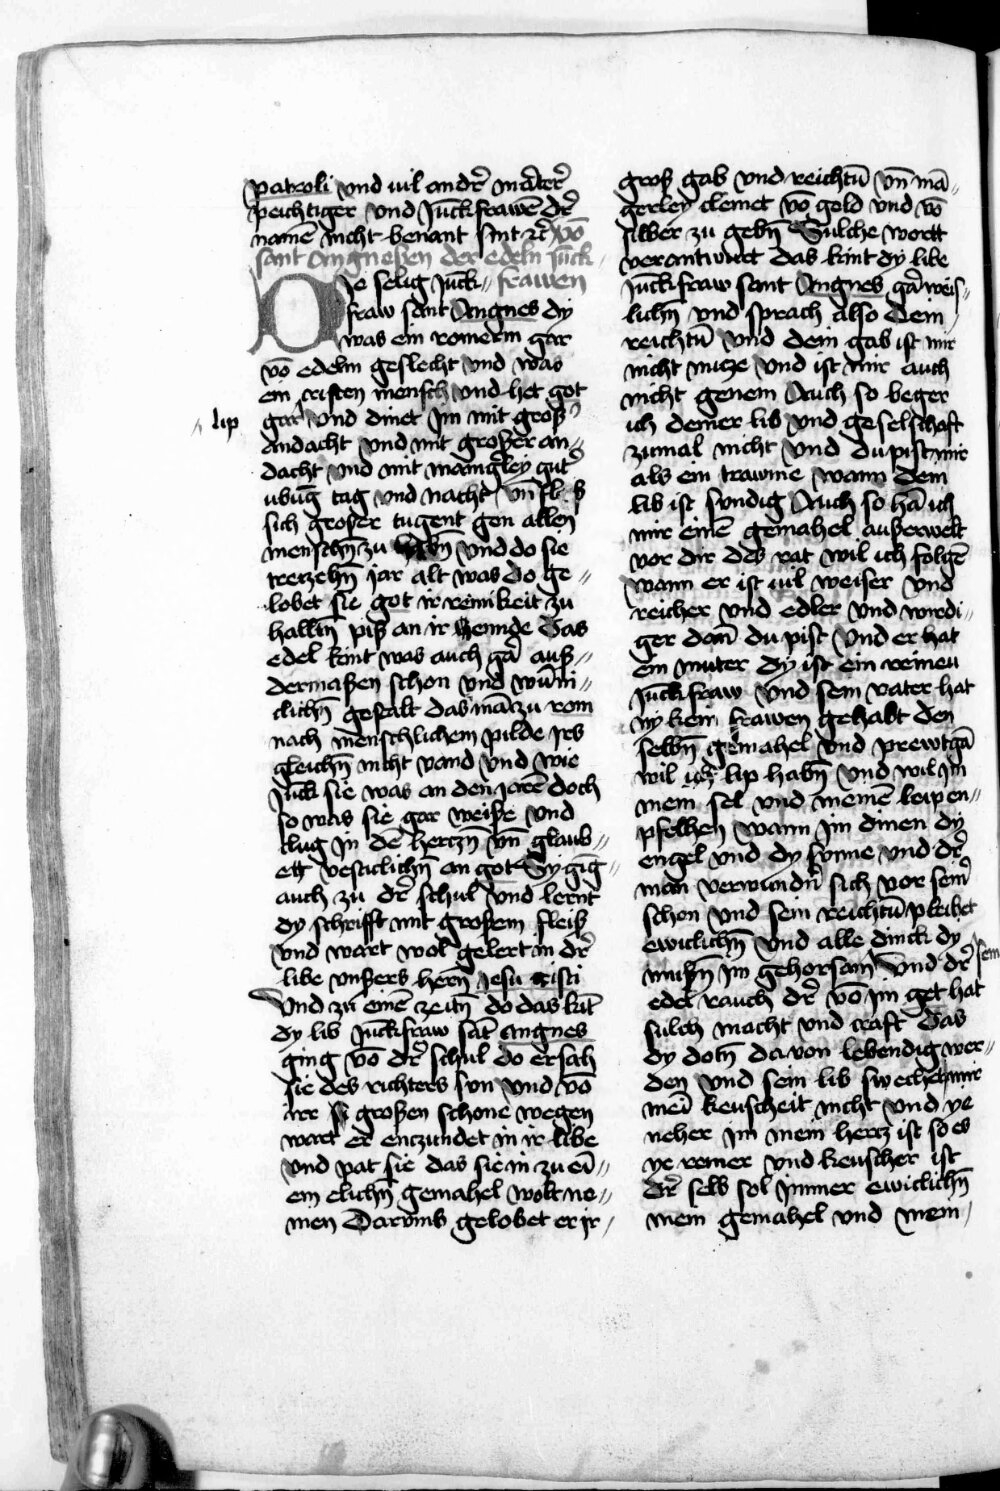 patroli vnd vil andr̄ martr̄
peichtiger vnd Jūckfrawē dr̄
namē nicht benant sint ꝛc̄ vō
sant Angneßen der edeln Jūck
frawen
DJe selig Jūck
fraw sant Angnes dy
was ein romerin gar
vō edelm geslecht vnd was
ein cristen mensch vnd het got
lip
gar vnd dinet Jm mit groß
andacht vnd mit großer an
dacht vnd mit mangerley gutr̄
vbūg tag vnd nacht vn̄ fleiß
sich großer tugent gen allen
menschn̄ zu habn̄ vnd do sie
trerzehn̄ jar alt was do ge
lobet sie got ir reinikeit zu
halltn̄ piß an ir ennde Das
edel kint was auch gar auß
dermaßen schon vnd wūni
clichn̄ gestalt das man zu rom
nach menschlichem pilde Jrs
gleichn̄ nicht vand vnd wie
Juck sie was an den jarē doch
so was sie gar weiße vnd
clug jn dē hertzn̄ vn̄ glaub
ett vesticlichn̄ an got Sy gīg
auch zu dr̄ schul vnd lernt
dy schrifft mit großem fleiß
vnd wart wol gelert in dr̄
libe vnßers hern̄ jesu cristi
Vnd zu einē zeitn̄ do das kīt
dy lib Juckfraw sāt Angnes
ging vō dr̄ schul do ersah
sie des richters sun vnd vō
irr großen schone wegen
wart er entzundet in ir libe
vnd pat sie das sie in zu eī
em elichn̄ gemahel wolt ne
men Darvmb gelobet er jr
groß gab vnd reichtū vn̄ mā
gerley clemet vō gold vnd vō
silber zu gebn̄ Sulche wortt
verantwurt das kint dy libe
Juckfraw sant Angnes gar weis
lichn̄ vnd sprach also Dein
reichtū vnd dein gab ist mir
nicht nutze vnd ist mir auch
nicht genem Auch so beger
ich deiner lib vnd geselschaft
zumal nicht vnd du pist mir
als ein trawme wann dein
lib ist sundig Auch so hā ich
mir einē gemahel außerwelt
vor dir des rat wil ich folgē
wann er ist vil weiser vnd
reicher vnd edler vnd wirdi
ger dān du pist Vnd er hat
ein muter dy ist ein reineu
Juckfraw vnd sein vater hat
ny kein frawen gehabt den
selbn̄ gemahel vnd prewtgā
wil ich lip habn̄ vnd wil jm
mein sel vnd meinē leip en
pfelhen wann im dinen dy
engel vnd dy sunne vnd dr̄
man verwundrn̄ sich vor seinr̄
schon vnd sein reichtū pleibet
ewiclichn̄ vnd alle dinck dy
mußn̄ jm gehorsam Vnd dr̄ sein
edel rauch dr̄ vō jm get hat
sulch macht vnd craft Das
dy dotn̄ da von lebendig wer
den vnd sein lib swechet mir
mei keuscheit nicht vnd ye
neher jm mein hertz ist so es
ye reiner vnd keuscher ist
dr̄ selb sol Jmmer ewiclichn̄
mein gemahel vnd mein